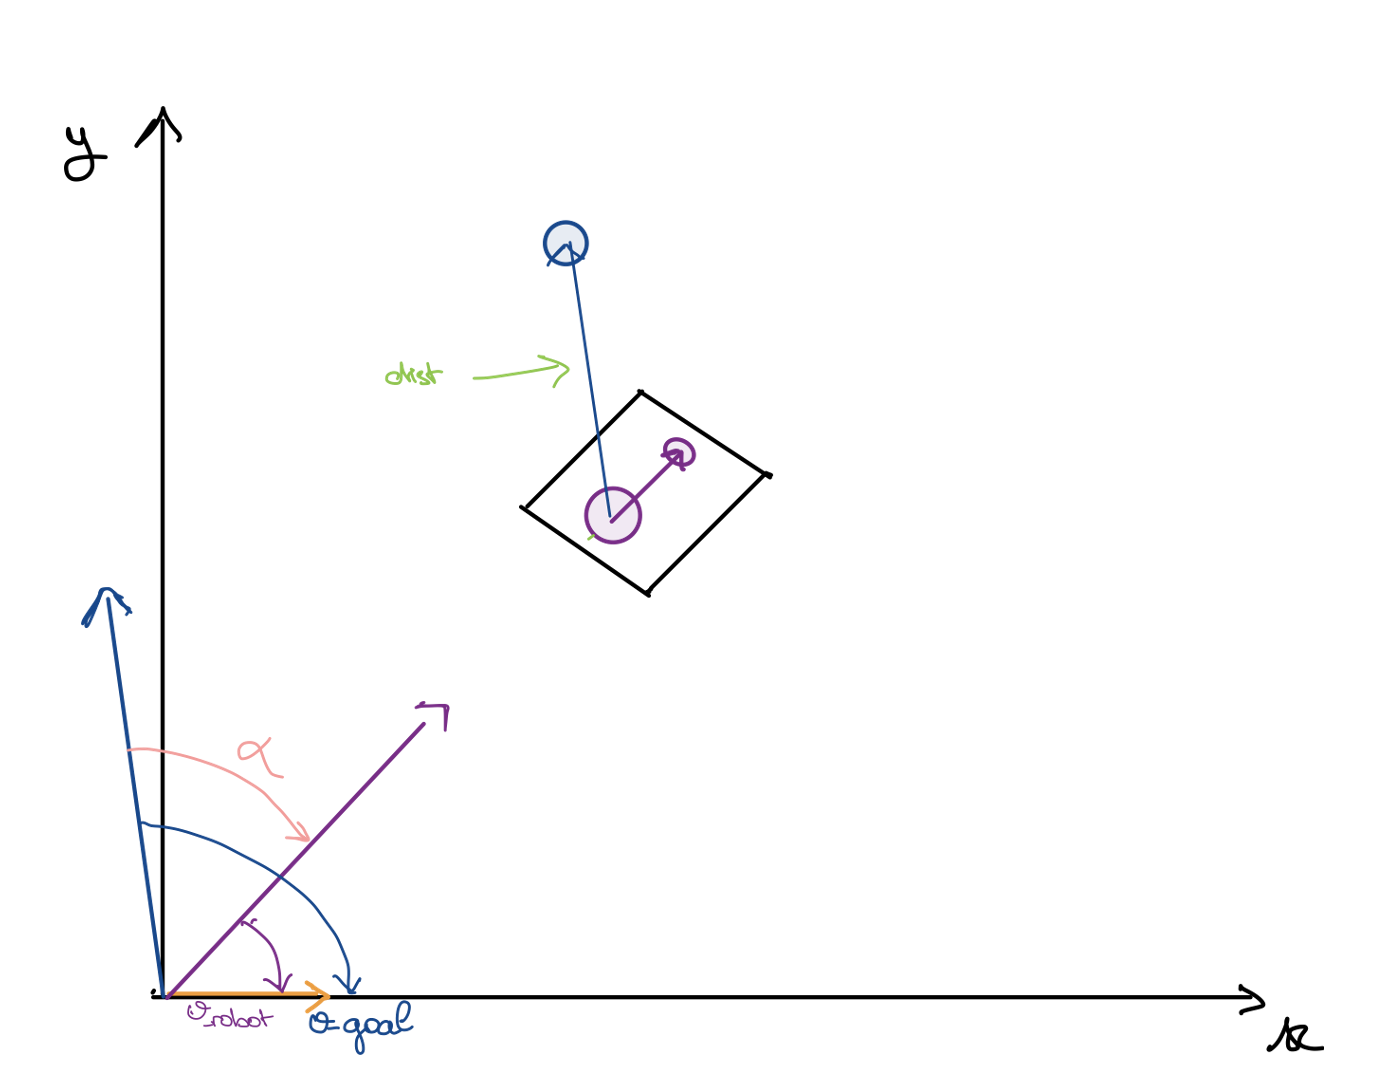 y
dist
α
θ_robot
θ_goal
x